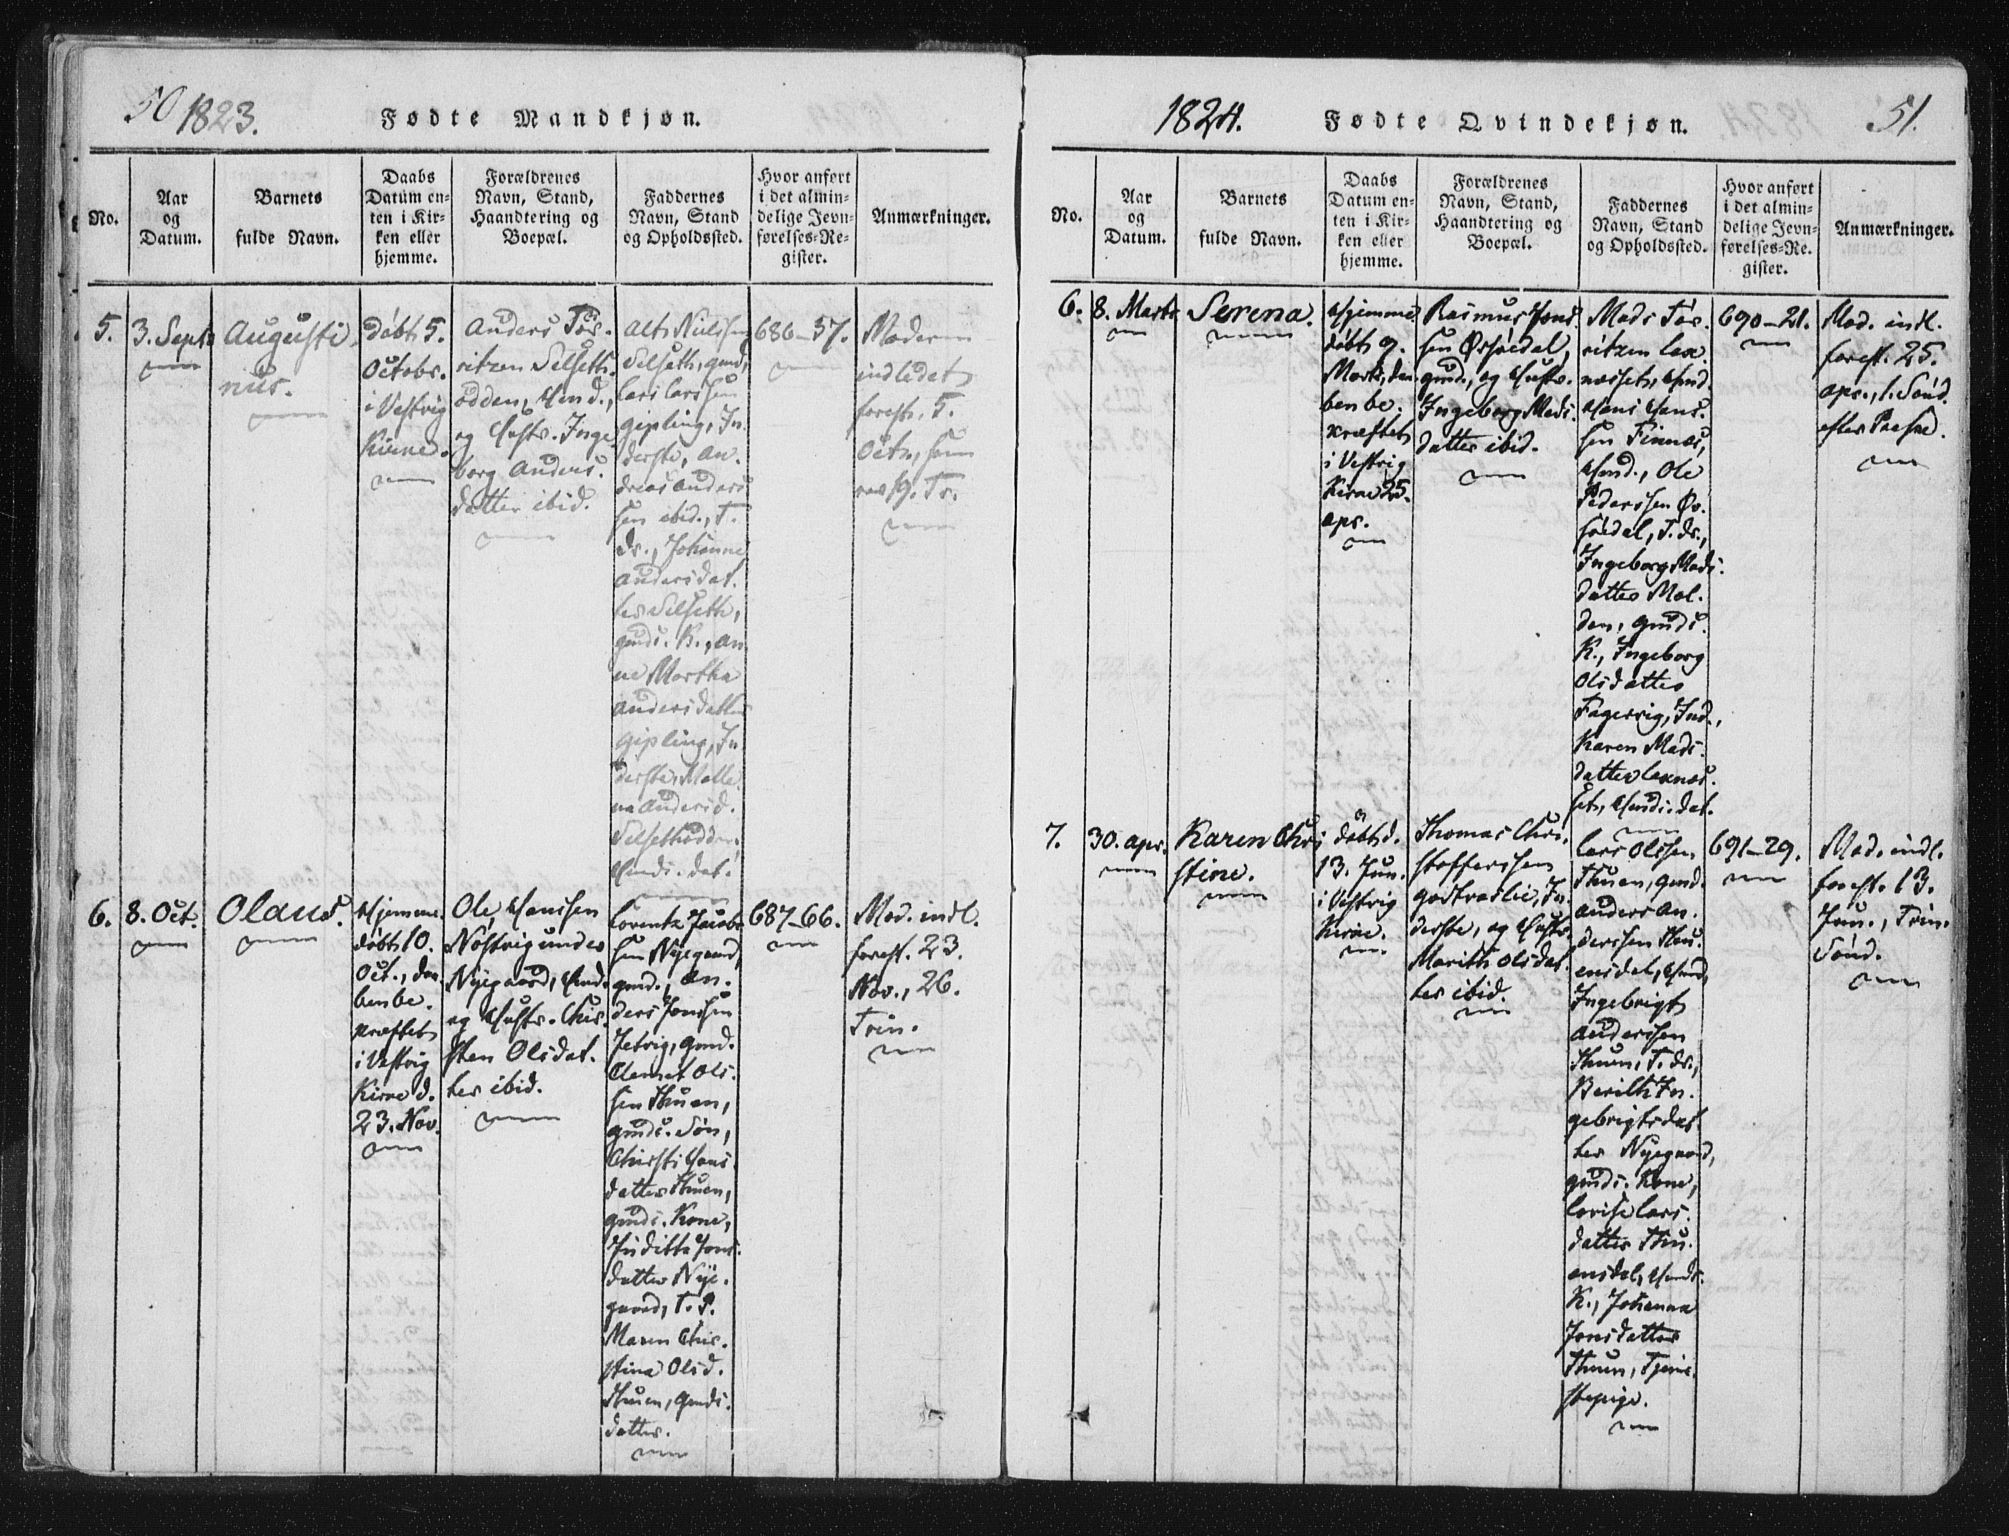 50 1823. Fødte Mandkjøn.
No.
Aar
og
Datum.
Barnets
fulde Navn.
Daabs
Datum en-
ten i Kir-
ken eller
hjemme.
Forældrenes
Navn, Stand,
Haandtering og
Boepæl.
Faddernes
Navn, Stand
og Opholdssted.
Hvor anført
i det almin-
delige Jevn-
førelses-Re-
gister.
Anmærkninger.
5.
3. Septr
Augusti
nus.
Døbt 5.
Octobr.
i Vestvig
Kirke.
Anders Tør-
ritzen Selseth-
odden, Hmd.,
og Hustr. Inge
borg Anders-
datter ibid.
Alt Nielssen
Selseth, gmd,
Lars Larssen
Gipling, In-
derste, An-
dreas Anders
sen ibid., T.
dr., Johanna
Andersdat-
ter Selseth,
gmds. K., An
ne Martha
Andersdatter
Gipling, In
derste, Malle
na Andersd.
Selsethodden,
Hmds. dat.
686-57.
Moderen
indledet
forest. 5.
Octr, som
var 19. Tr.
6.
8. Oct.
Olaus.
Hjemme-
døbt 10.
Oct., daa
ben be-
kræftet
i Vestvig
Kirke d.
23. Nov.
Ole Hanssen
Nøstvig under
Nyegaard, Hmd.
og Hustr. Chir-
sten Olsdat-
ter ibid.
Lorentz Jacob
sen Nyegaard,
gmd., An-
ders Jonssen
Jetvig, gmd.
Clemet Ols-
sen Thuen,
gmds. Søn,
Chirsti Hans
datter Thuen,
gmds. Kone,
Juditta Jons-
datter Nye-
gaard, T. P.
Maren Chir-
stina Olsd.
Thuen, gmds.
datter.
687-66.
Mod. indl.
forest. 23.
Nov., 26.
Trin.
1824. Fødte Qvindekjøn. 51.
No.
Aar
og
Datum.
Barnets
fulde Navn.
Daabs
Datum en-
ten i Kir-
ken eller
hjemme.
Forældrenes
Navn, Stand,
Haandtering og
Boepæl.
Faddernes
Navn, Stand
og Opholdssted.
Hvor anført
i det almin-
delige Jevn-
førelses-Re-
gister.
Anmærkninger.
6.
8. Marts
Serena.
Hjemme
døbt 9.
Marts, daa
ben be-
kræftet
i Vestvig
Kirke 25.
apr.
Rasmus Jons
sen Øksiedal,
gmd., og Hustr.
Ingeborg Mads-
datter ibid.
Mads Tør-
ritzen Lax-
næsset, Hmd.
Hans Hans-
sen Finnæs,
Hmd., Ole
Pederssen Øk-
siedal, T. dr.,
Ingeborg Mads-
datter Mol-
den, gmds.
K., Ingeborg
Olsdatter
Fagervig, Ind.,
Karen Mads-
datter Laxnæs-
set, Hmds. dat.
690-21.
Mod. indl.
forest. 25.
apr., 1. Sønd.
efter Paaske.
7.
30. apr.
Karen Chri
stine.
Døbt d.
13. Jun.
i Vestvig
Kirke.
Thomas Chri-
stofferssen
Godtvaslie, In-
derste, og Hustr.
Marith Olsdat-
ter ibid.
Lars Olssen
Thuen, gmd.
Anders An-
derssen Thu-
ensdal, Hmd,
Ingebrigt
Anderssen
Thuen, T. dr.,
Berith In-
gebrigtsdat-
ter Nyegaard,
gmds. Kone,
Lovise Lars-
datter Thu-
ensdal, Hmds.
K., Johanna
Jonsdatter
Thuen, Tjene-
stepige.
691-29.
Mod. indl.
forest. 13.
Jun., Trin.
Sønd.